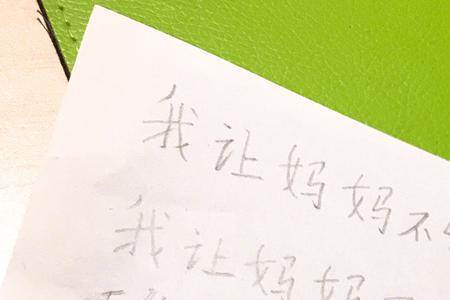 我让妈妈不
我让妈妈